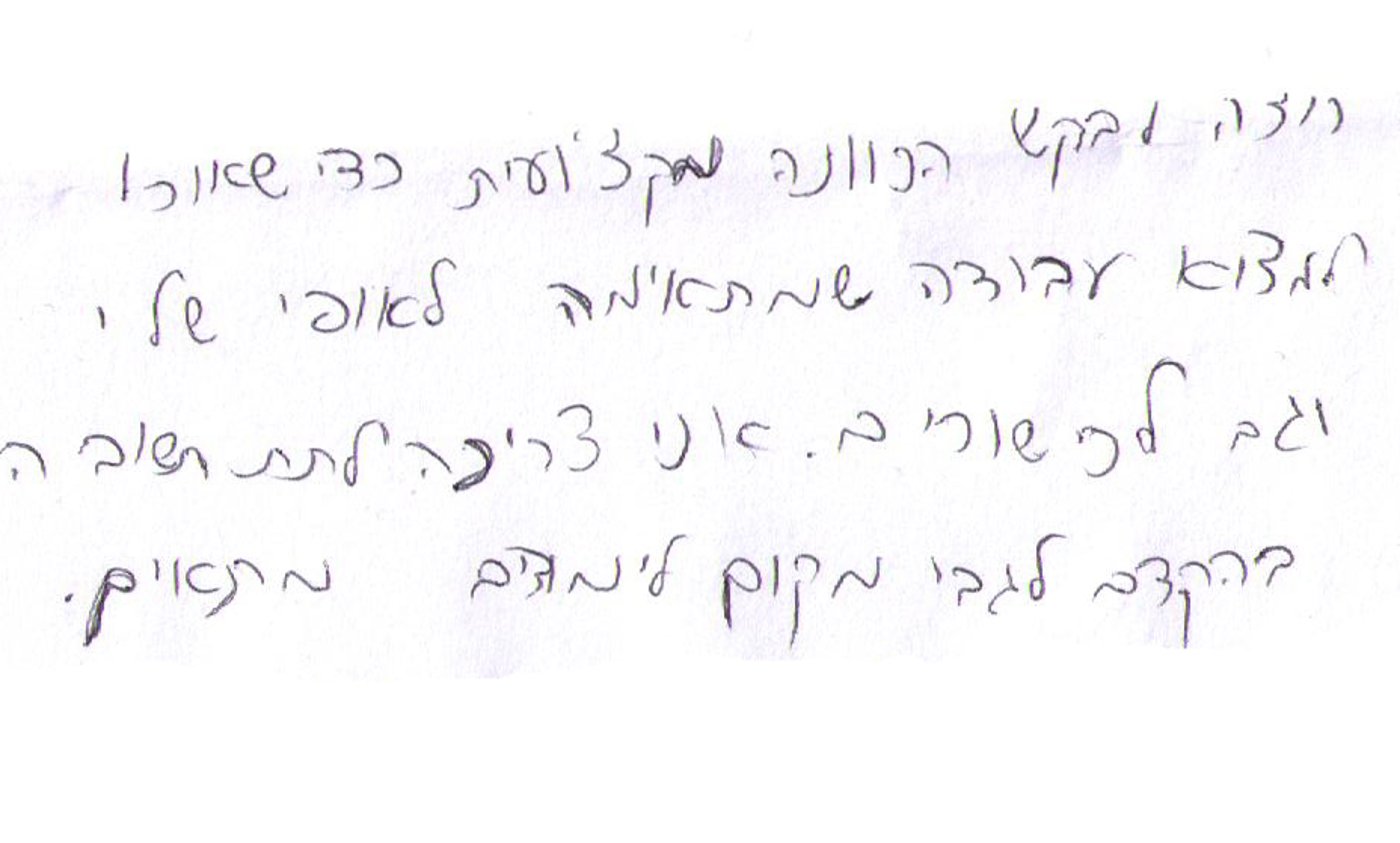 רוצה לבקש הכוונה מקצועית כדי שאוכל
למצוא עבודה שמתאימה לאופי שלי
וגם לכישורים. אני צריכה לתת תשובה
בהקדם לגבי מקום לימודים מתאים.